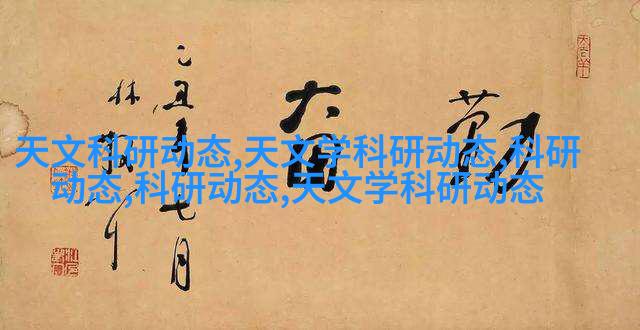 天文科研动态,天文学科研动态,科研
动态,科研动态,天文学科研动态
勤奮
乙丑年七月
林散耳